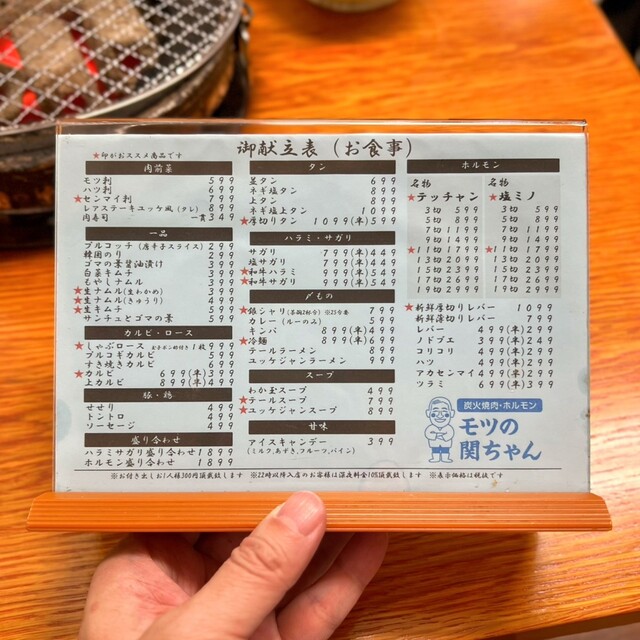 御献立表(お食事)
★印がおススメ商品です
肉前菜
モツ刺 599
ハツ刺 699
★センマイ刺 799
レアステーキユッケ風(タレ) 899
肉寿司 一貫 349
一品
ブルコッチ(唐辛子スライス) 299
韓国のり 299
ゴマの葉醤油漬け 399
白菜キムチ 399
もやしナムル 399
★生ナムル(生わかめ) 399
★生ナムル(きゅうり) 499
★生キムチ 599
サンチュとゴマの葉 599
カルビ・ロース
★しゃぶロース 1枚 999
プルコギカルビ 599
すき焼きカルビ 699
★カルビ 699(半)399
上カルビ 899(半)499
豚・鶏
せせり 499
トントロ 499
ソーセージ 499
盛り合わせ
ハラミサガリ盛り合わせ 1899
ホルモン盛り合わせ 1899
タン
並タン 699
ネギ塩タン 899
上タン 899
ネギ塩上タン 1099
★厚切りタン 1099(半)599
ハラミ・サガリ
サガリ 799(半)449
塩サガリ 799(半)449
★和牛ハラミ 999(半)549
★和牛サガリ 999(半)549
〆もの
★銀シャリ(茶碗2杯分)※25分要 799
カレー(ルーのみ) 799
キンパ 899(半)499
★冷麺 899(半)699
テールラーメン 899
ユッケジャンラーメン 999
スープ
わか玉スープ 499
★テールスープ 799
★ユッケジャンスープ 899
甘味
アイスキャンデー 399
(ミルク,あずき,フルーツ,パイン)
ホルモン
名物
★テッチャン
3切 599
5切 799
7切 999
9切 1199
11切 1399
★11切 1799
13切 1999
15切 2299
17切 2699
19切 2999
名物
★塩ミノ
3切 599
5切 799
7切 1199
9切 1499
★11切 1799
13切 1999
15切 2399
17切 2699
19切 2999
★新鮮厚切りレバー 1099
新鮮薄切りレバー 799
レバー 499(半)299
ノドブエ 399(半)249
コリコリ 499(半)299
ハツ 499(半)299
アカセンマイ 499(半)299
ツラミ 699(半)399
炭火焼肉・ホルモン
モツの
関ちゃん
※お付き出しお1人様300円頂戴致します ※22時以降入店のお客様は深夜料金10%頂戴致します ※表示価格は税抜です